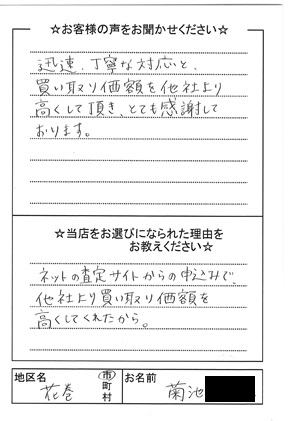 ☆お客様の声をお聞かせください☆
迅速、丁寧な対応と、
買い取り価額を他社より
高くして頂き、とても感謝して
おります。
☆当店をお選びになられた理由を
お教えください☆
ネットの査定サイトからの申込みで、
他社より買い取り価額を
高くしてくれたから。
地区名 花巻 市町村 お名前 菊池